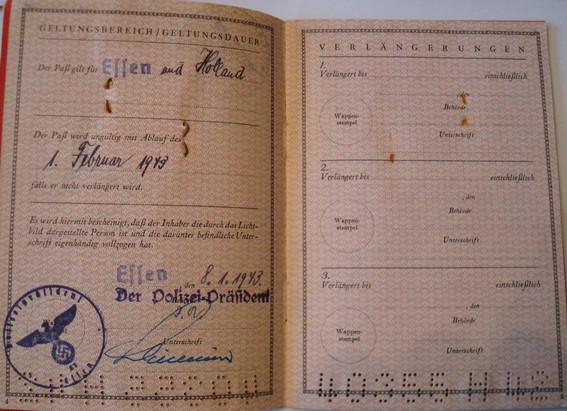 GELTUNGSBEREICH/GELTUNGSDAUER
Der Paß gilt für Essen und Holland
Der Paß wird ungültig mit Ablauf des
1. Februar 1943
falls er nicht verlängert wird.
Es wird hiermit bescheinigt, daß der Inhaber die durch das Licht-
bild dargestellte Person ist und die darunter befindliche Unter-
schrift eigenhändig vollzogen hat.
Essen den 8.1.1943.
Der Polizei-Präsident
Unterschrift
Essen
VERLÄNGERUNGEN
1.
Verlängert bis einschließlich
, den
Wappen-
stempel
Behörde
Unterschrift
2.
Verlängert bis einschließlich
, den
Wappen-
stempel
Behörde
Unterschrift
3.
Verlängert bis einschließlich
, den
Wappen-
stempel
Behörde
Unterschrift